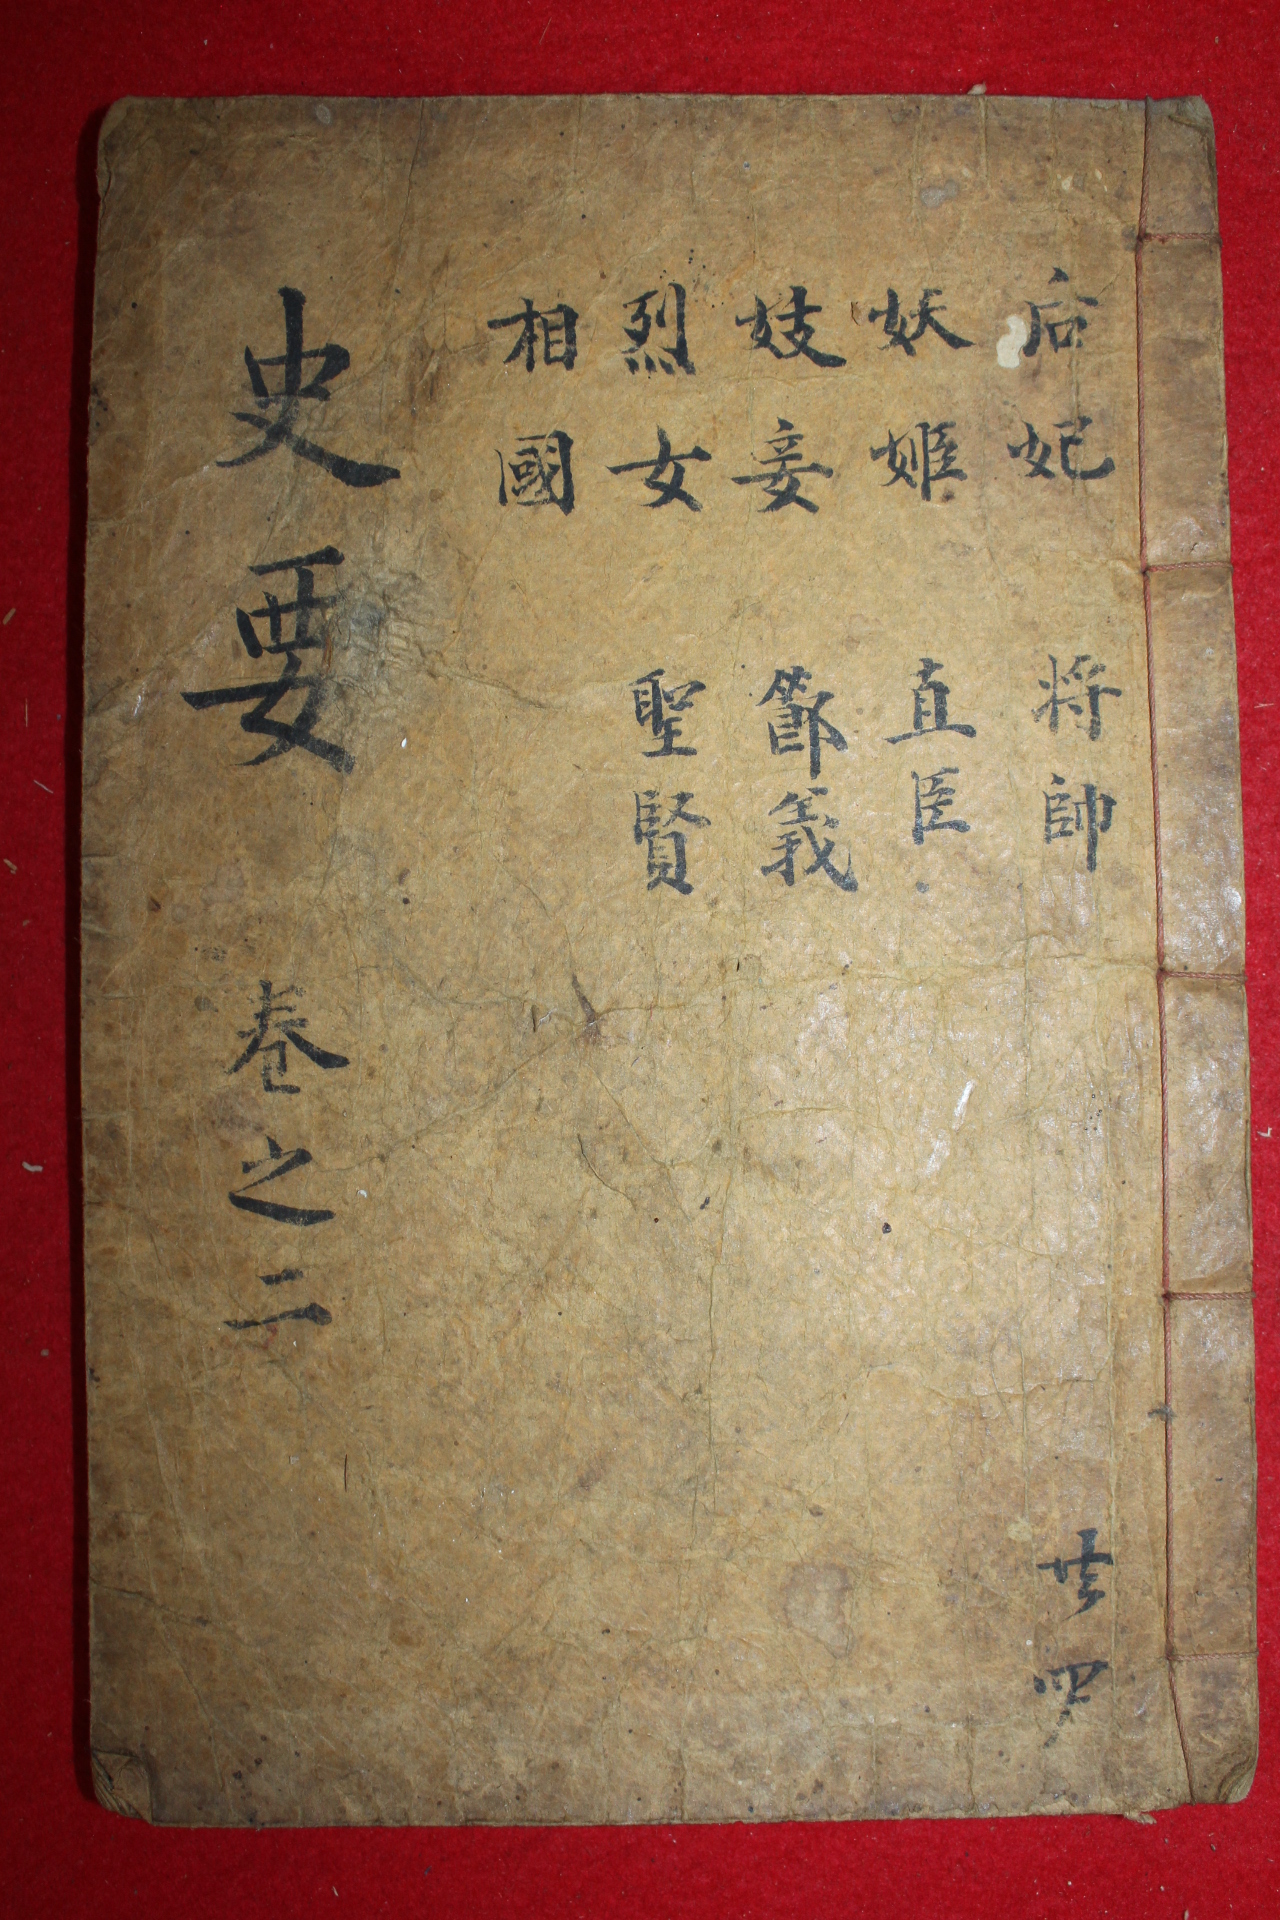 后妃 将帥 共四
妖姬 直臣
妓妾 節義
烈女 聖賢
相國
史要 卷之二